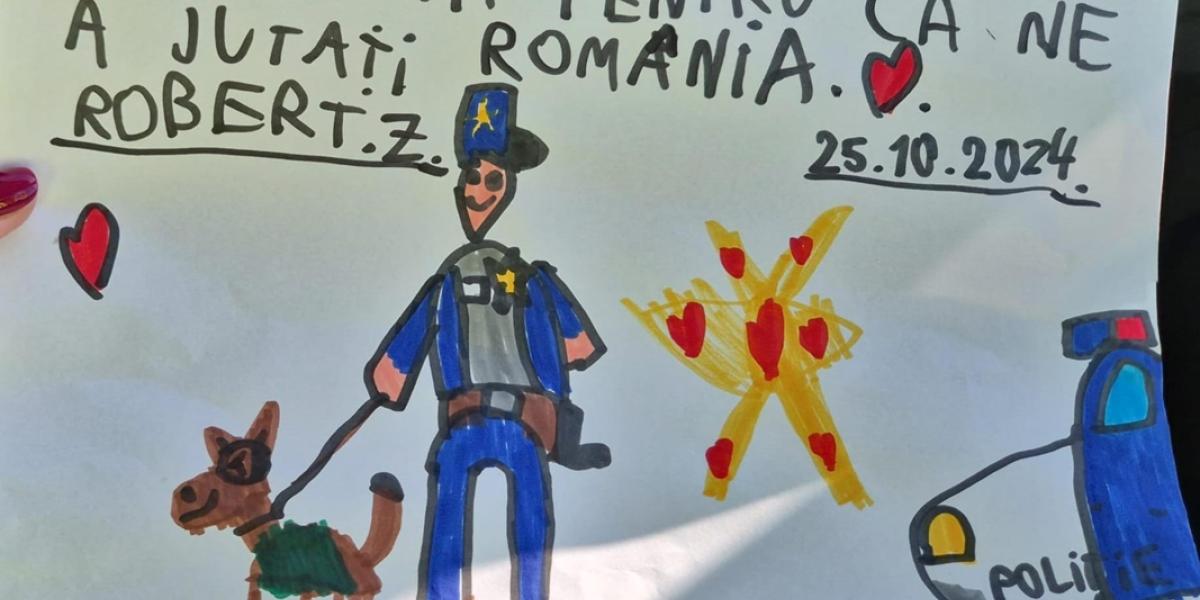 PENTRU CA NE
A JUTAȚI ROMÂNIA.
ROBERT.Z.
25.10.2024.
POLIȚIE